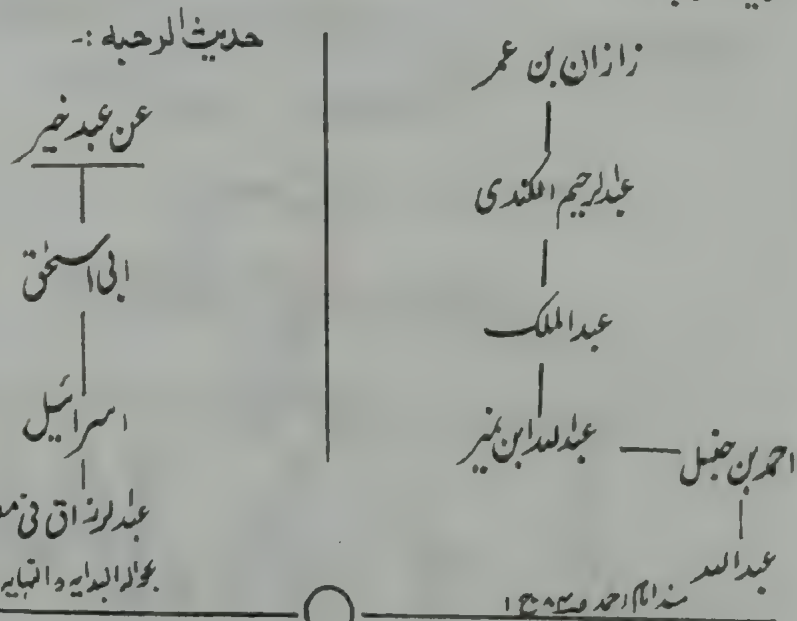 زازان بن عمر
عبدالرحیم الکندی
عبدالملک
عبداللہ ابن نمیر
احمد بن حنبل
عبداللہ
مسند امام احمد ج ۱
حدیث الرحبه :-
عن عبد خیر
ابی اسحٰق
اسرائیل
عبدالرزاق فی
بحوالہ البدایہ والنہایہ